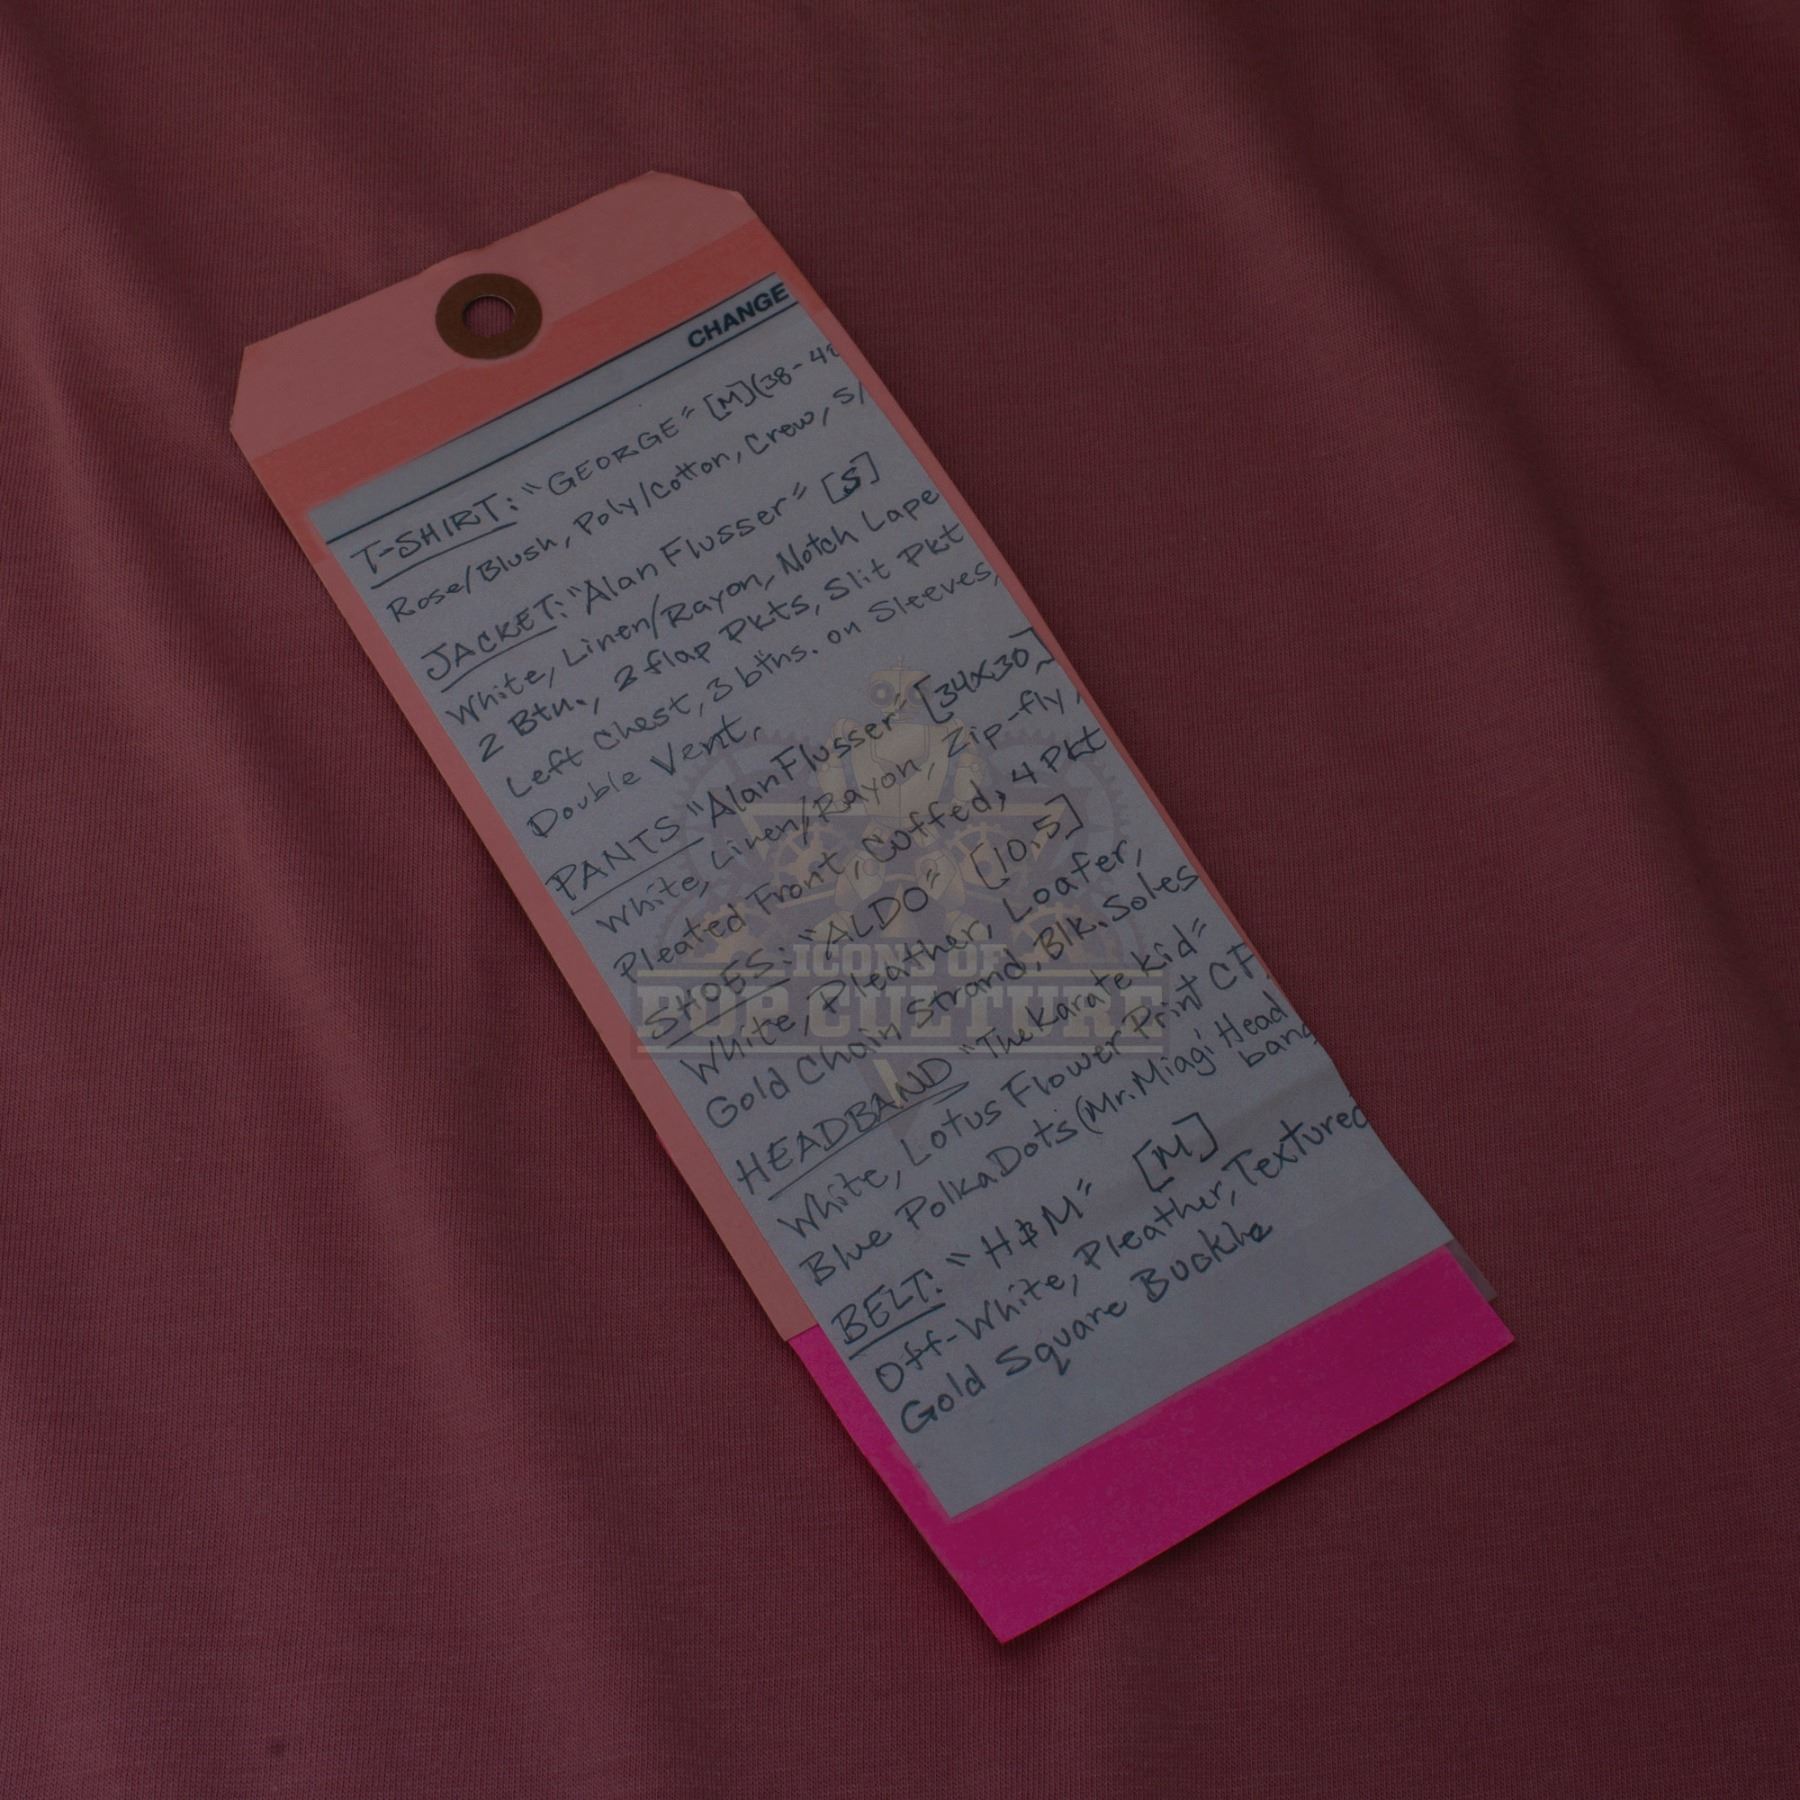 CHANGE
T-SHIRT: "GEORGE" [M] (38-40
Rose/Blush, Poly/Cotton, Crew, S/
JACKET: "Alan Flusser" [S]
White, Linen/Rayon, Notch Lape
2 Btn., 2 flap Pkts, Slit Pkt
Left Chest, 3 btns. on Sleeves,
Double Vent,
PANTS "Alan Flusser" [34x30]
White, Linen/Rayon, Zip-fly,
Pleated Front, Cuffed, 4 Pkt
SHOES: "ALDO" [10.5]
White, Pleather, Loafer,
Gold Chain Strand, Blk. Soles
HEADBAND "The Karate Kid"
White, Lotus Flower Print CF,
Blue Polka Dots (Mr. Miagi Head
band
BELT: "H&M" [M]
Off-White, Pleather, Textured
Gold Square Buckle
ICONS OF
POP CULTURE